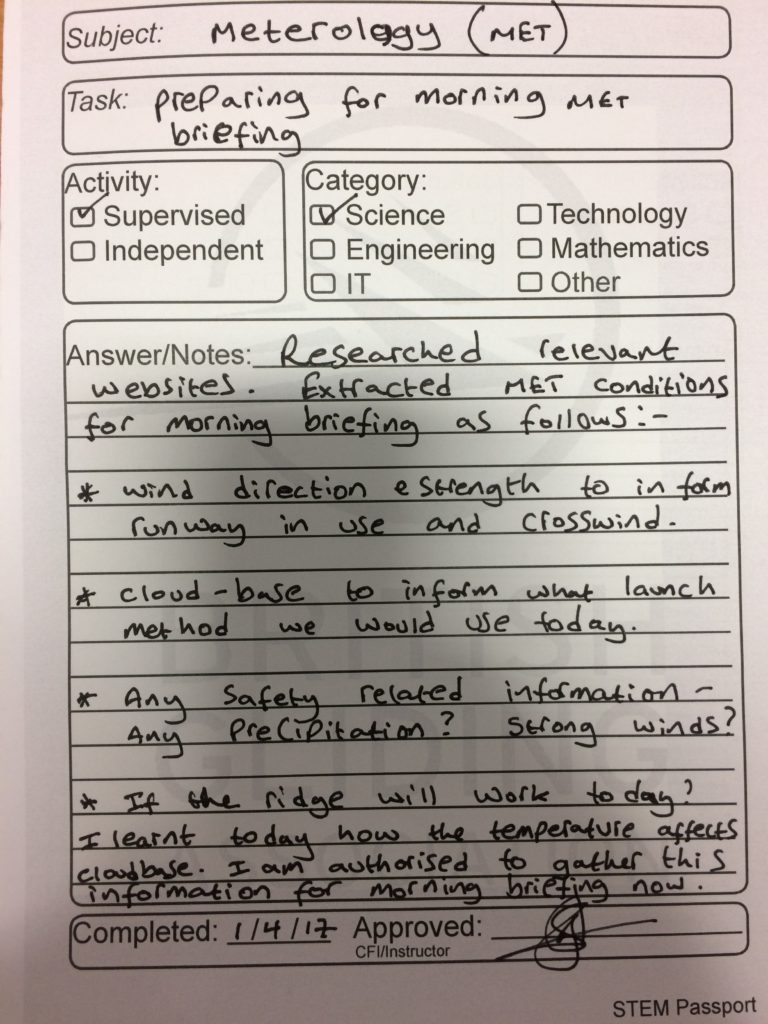 Subject: Meterology (MET)
Task: preparing for morning MET
briefing
Activity: Category:
Supervised Science Technology
Independent Engineering Mathematics
IT Other
Answer/Notes: Researched relevant
websites. Extracted MET conditions
for morning briefing as follows:-
* wind direction & strength to inform
runway in use and crosswind.
* cloud-base to inform what launch
method we would use today.
* Any safety related information -
Any precipitation? Strong winds?
* If the ridge will work today?
I learnt today how the temperature affects
cloudbase. I am authorised to gather this
information for morning briefing now.
Completed: 1/4/17 Approved:
CFI/Instructor
STEM Passport
BRITISH
GLIDING
ASSOCIATION